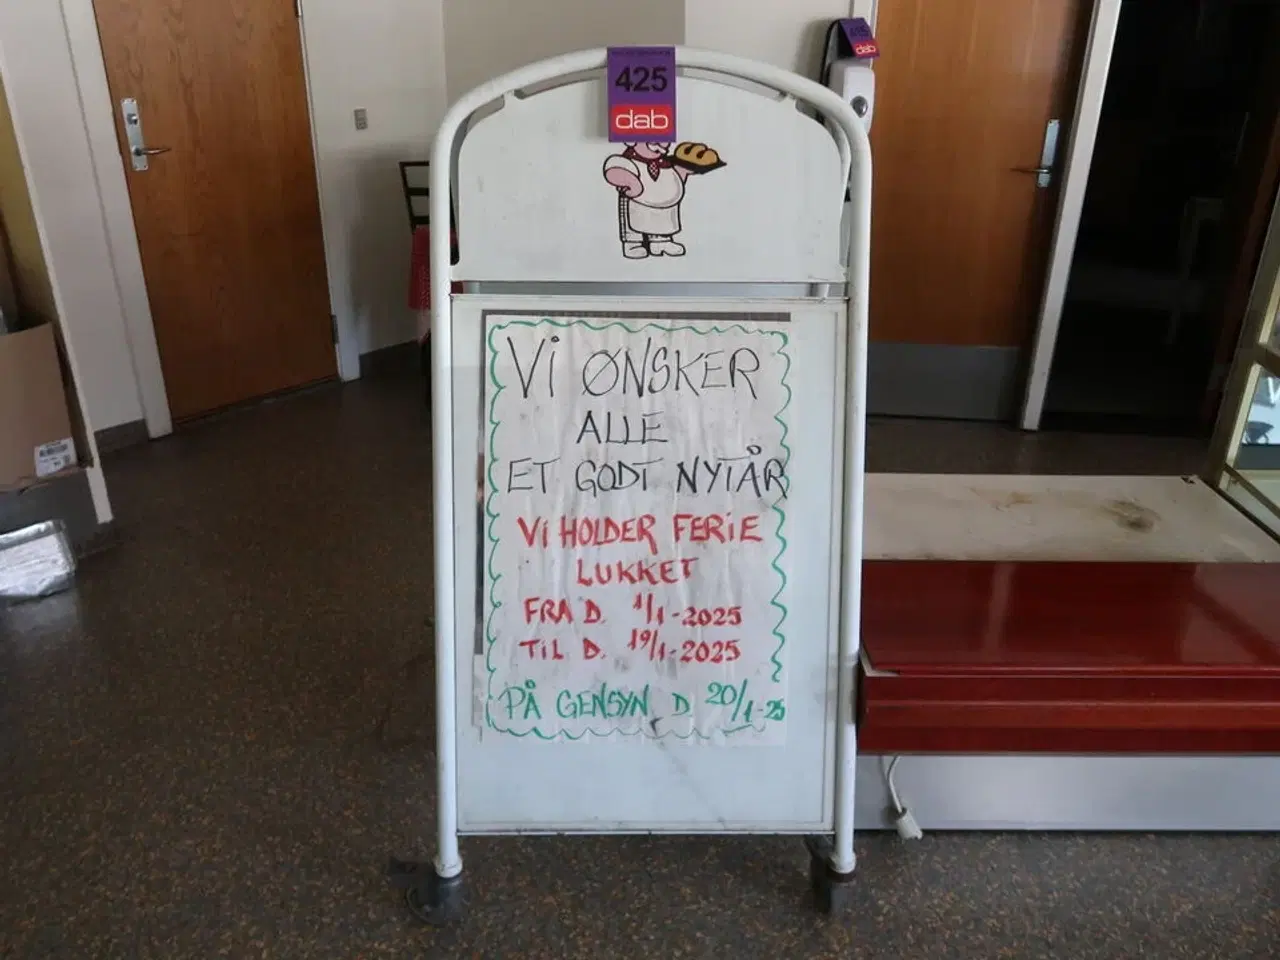 425
dab
dab
Vi ØNSKER
ALLE
ET GODT NYTÅR
Vi HOLDER FERiE
LUKKET
FRA D. 1/1-2025
TiL D. 19/1-2025
PÅ GENSYN D 20/1-25